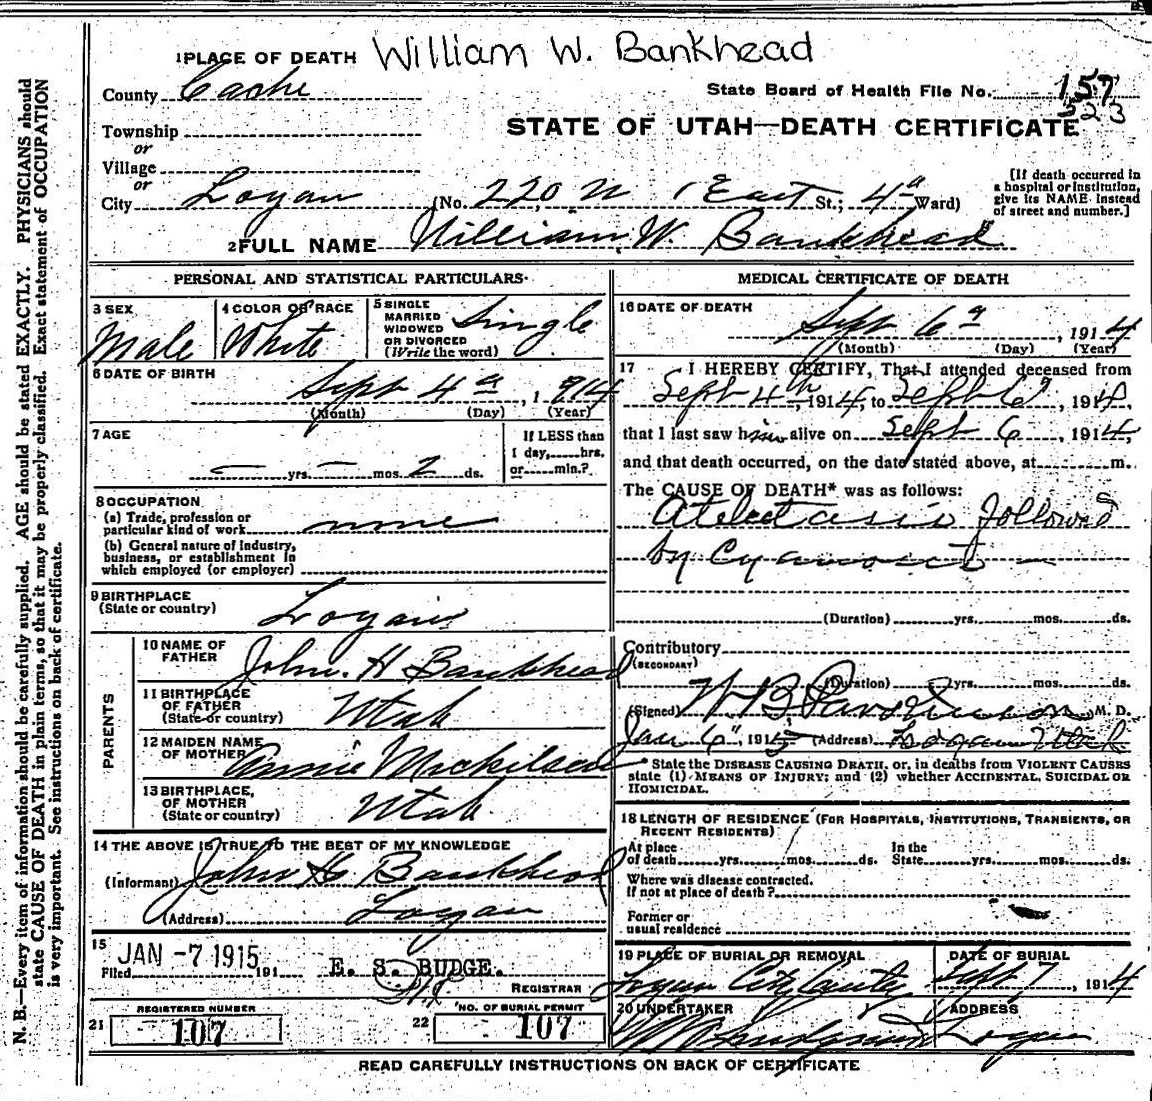 1 PLACE OF DEATH William W. Bankhead
County Cache
State Board of Health File No. 157
323
Township
or
STATE OF UTAH—DEATH CERTIFICATE
Village
or
City Logan (No. 220 N 1 East St.; 4 Ward)
[If death occurred in
a hospital or institution,
give its NAME instead
of street and number.]
2 FULL NAME William W. Bankhead
PERSONAL AND STATISTICAL PARTICULARS
3 SEX
Male
4 COLOR OR RACE
White
5 SINGLE
MARRIED
WIDOWED
OR DIVORCED
(Write the word)
Single
6 DATE OF BIRTH
Sept 4, 1914
(Month) (Day) (Year)
7 AGE
— yrs. — mos. 2 ds.
If LESS than
1 day,......hrs.
or......min.?
8 OCCUPATION
(a) Trade, profession or
particular kind of work none
(b) General nature of industry,
business, or establishment in
which employed (or employer)
9 BIRTHPLACE
(State or country) Logan
PARENTS
10 NAME OF
FATHER John. H Bankhead
11 BIRTHPLACE
OF FATHER
(State or country) Utah
12 MAIDEN NAME
OF MOTHER Annie
13 BIRTHPLACE,
OF MOTHER
(State or country) Utah.
14 THE ABOVE IS TRUE TO THE BEST OF MY KNOWLEDGE
(Informant) John H Bankhead
(Address) Logan
15
Filed JAN -7 1915 191
E. S. BUDGE.
REGISTRAR
REGISTERED NUMBER
21 107
NO. OF BURIAL PERMIT
22 107
MEDICAL CERTIFICATE OF DEATH
16 DATE OF DEATH
Sept 6, 1914
(Month) (Day) (Year)
17 I HEREBY CERTIFY, That I attended deceased from
Sept 4th, 1914, to Sept 6, 1914,
that I last saw him alive on Sept 6, 1914,
and that death occurred, on the date stated above, at m.
The CAUSE OF DEATH* was as follows:
Atelectasis followed
by Cyanosis
(Duration) yrs. mos. ds.
Contributory
(SECONDARY)
(Duration) yrs. mos. ds.
(Signed) W B Parkinson M. D.
Jan 6", 1915 (Address) Logan Utah
* State the DISEASE CAUSING DEATH, or, in deaths from VIOLENT CAUSES
state (1) MEANS OF INJURY; and (2) whether ACCIDENTAL, SUICIDAL OR
HOMICIDAL.
18 LENGTH OF RESIDENCE (FOR HOSPITALS, INSTITUTIONS, TRANSIENTS, OR
RECENT RESIDENTS)
At place
of death yrs. mos. ds.
In the
State yrs. mos. ds.
Where was disease contracted.
If not at place of death?
Former or
usual residence
19 PLACE OF BURIAL OR REMOVAL
Logan City
DATE OF BURIAL
Sept 7, 1914
20 UNDERTAKER
ADDRESS
Logan
READ CAREFULLY INSTRUCTIONS ON BACK OF CERTIFICATE
N. B.—Every item of information should be carefully supplied. AGE should be stated EXACTLY. PHYSICIANS should
state CAUSE OF DEATH in plain terms, so that it may be properly classified. Exact statement of OCCUPATION
is very important. See instructions on back of certificate.